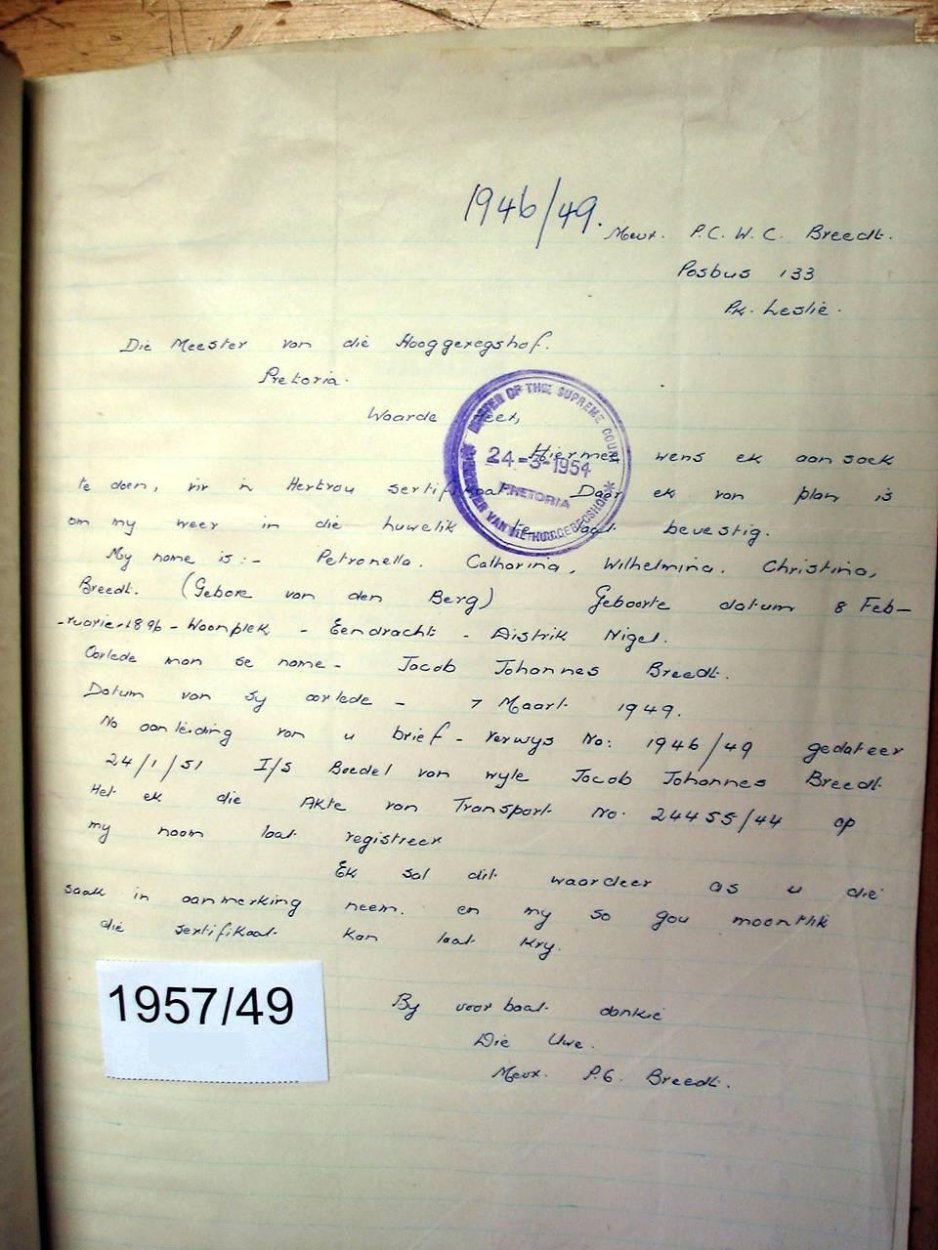 1946/49.
Mevr. P.C. W. C. Breedt.
Posbus 133
Pk. Leslie.
Die Meester van die Hooggeregshof.
Pretoria.
Waarde Heer,
MASTER OF THE SUPREME COURT
24-3-1954
PRETORIA
VAN DIE HOOGGEREGSHOF
Hiermee wens ek aansoek
te doen, vir 'n Hertrou sertifikaat. Daar ek van plan is
om my weer in die huwelik te laat bevestig.
My name is:- Petronella. Catharina, Wilhelmina. Christina,
Breedt. (Gebore van den Berg) Geboorte datum 8 Feb-
-ruarie-1896 - Woonplek - Eendracht - Distrik Nigel.
Oorlede man se name - Jacob Johannes Breedt.
Datum van sy oorlede - 7 Maart 1949.
Na aanleiding van u brief - verwys No: 1946/49 gedateer
24/1/51 I/S Boedel van wyle Jacob Johannes Breedt
Het ek die Akte van Transport No. 24455/44 op
my naam laat registreer
Ek sal dit waardeer as u die
saak in aanmerking neem. en my so gou moontlik
die sertifikaat kan laat kry.
By voorbaat dankie
Die Uwe.
Mevr. P.G. Breedt.
1957/49